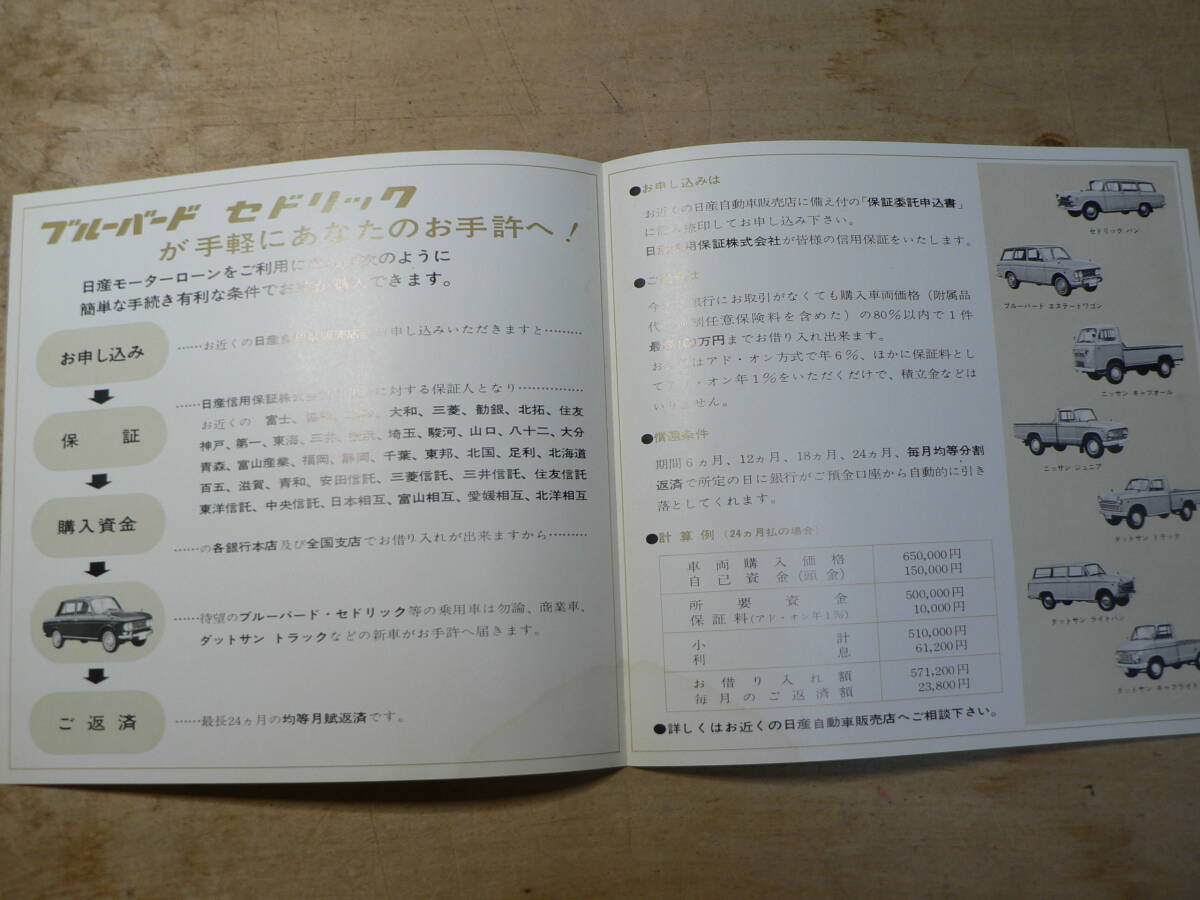 ブルーバード セドリック
が手軽にあなたのお手許へ!
日産モーターローンをご利用に 次のように
簡単な手続き有利な条件でお 購入できます。
お申し込み
……お近くの日産自 販売店 お申し込みいただきますと………
保証
……日産信用保証株式会 に対する保証人となり……………
お近くの 富士、協和、 大和、三菱、勧銀、北拓、住友
神戸、第一、東海、三井、 埼玉、駿河、山口、八十二、大分
青森、富山産業、福岡、静岡、千葉、東邦、北国、足利、北海道
百五、滋賀、青和、安田信託、三菱信託、三井信託、住友信託
東洋信託、中央信託、日本相互、富山相互、愛媛相互、北洋相互
購入資金
……の各銀行本店及び全国支店でお借り入れが出来ますから………
……待望のブルーバード・セドリック等の乗用車は勿論、商業車、
ダットサン トラックなどの新車がお手許へ届きます。
ご返済
……最長24ヵ月の均等月賦返済です。
●お申し込みは
お近くの日産自動車販売店に備え付の「保証委託申込書」
に記入捺印してお申し込み下さい。
日産信用保証株式会社が皆様の信用保証をいたします。
●ご は
今 銀行にお取引がなくても購入車両価格(附属品
代 別任意保険料を含めた)の80%以内で1件
最高100万円までお借り入れ出来ます。
お はアド・オン方式で年6%、ほかに保証料とし
て ・オン年1%をいただくだけで、積立金などは
いりません。
●償還条件
期間6ヵ月、12ヵ月、18ヵ月、24ヵ月、毎月均等分割
返済で所定の日に銀行がご預金口座から自動的に引き
落としてくれます。
●計算例(24ヵ月払の場合)
車両購入価格 650,000円
自己資金(頭金) 150,000円
所要資金 500,000円
保証料(アド・オン年1%) 10,000円
小計 510,000円
利息 61,200円
お借り入れ額 571,200円
毎月のご返済額 23,800円
●詳しくはお近くの日産自動車販売店へご相談下さい。
セドリック バン
ブルーバード エステートワゴン
ニッサン キャブオール
ニッサン ジュニア
ダットサン トラック
ダットサン ライトバン
ダットサン キャブライト